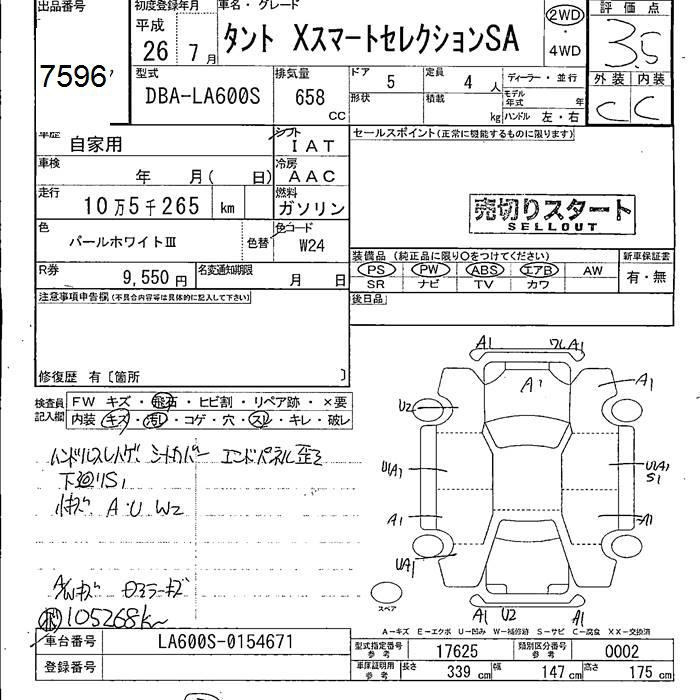 出品番号
7596
初度登録年月
平成
26 7月
車名・グレード
タント XスマートセレクションSA
2WD
・
4WD
評価点
3.5
外装 内装
C C
型式
DBA-LA600S
排気量
658
CC
ドア 5
定員 4 人
形状
積載 kg
ディーラー・並行
モデル年式 年
ハンドル 左・右
車歴 自家用
シフト
IAT
車検 年 月( 日)
冷房
AAC
走行
10万5千265 km
燃料
ガソリン
色
パールホワイトⅢ
色替
色コード
W24
R券 9,550円
名変通知期限 月 日
セールスポイント(正常に機能するものに限ります)
売切りスタート
SELLOUT
装備品(純正品に限り○をつけてください)
PS PW ABS エアB AW
SR ナビ TV カワ
新車保証書
有・無
後日品
注意事項申告欄(不具合内容等は具体的に記入して下さい)
修復歴 有〔箇所 〕
検査員記入欄
FW キズ・飛石・ヒビ割・リペア跡・×要
内装 キズ・汚レ・コゲ・穴・スレ・キレ・破レ
ハンドルスレハゲ シートカバー エンドパネル歪ミ
下廻りS1
小キズ A・U W2
105268km
A1 A1
A1 A1
U2
U1A1 U1A1
S1
A1 A1
UA1
A1 U2 A1
スペア
A-キズ E-エクボ U-凹み W-補修跡 S-サビ C-腐食 XX-交換済
車台番号 LA600S-0154671
登録番号
型式指定番号 参考 17625
類別区分番号 参考 0002
車庫証明用 参考 長さ 339 cm 幅 147 cm 高さ 175 cm